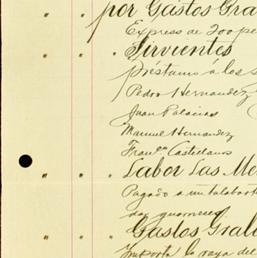 " " por Gastos Gra
Express de 200 pe
" " Sirvientes
préstamo á los s
Pedro Hernandez
Juan Palacios
Manuel Hernandez
Castellanos
" " Labor Las Me
Pagado a un
dos guarneses
" " Gastos Grale
Importa la raya del